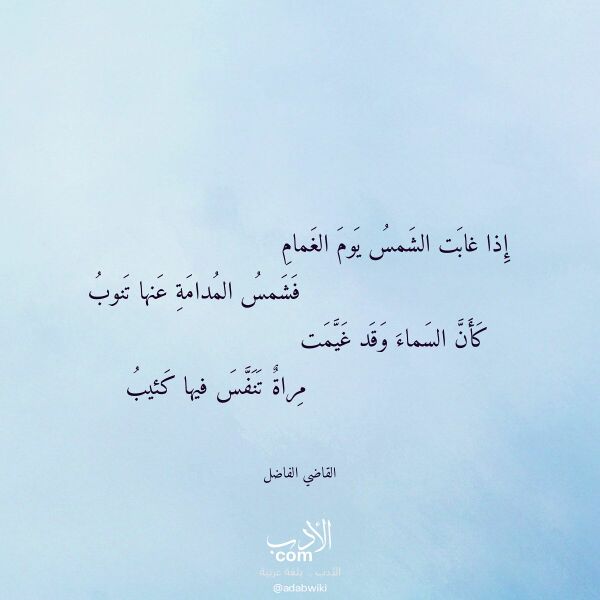 إِذا غابَت الشَمسُ يَومَ الغَمامِ
فَشَمسُ المُدامَةِ عَنها تَنوبُ
كَأَنَّ السَماءَ وَقَد غَيَّمَت
مِراةٌ تَنَفَّسَ فيها كَئيبُ
القاضي الفاضل
الأدب
com
الأدب .. بلغة عربية
@adabwiki